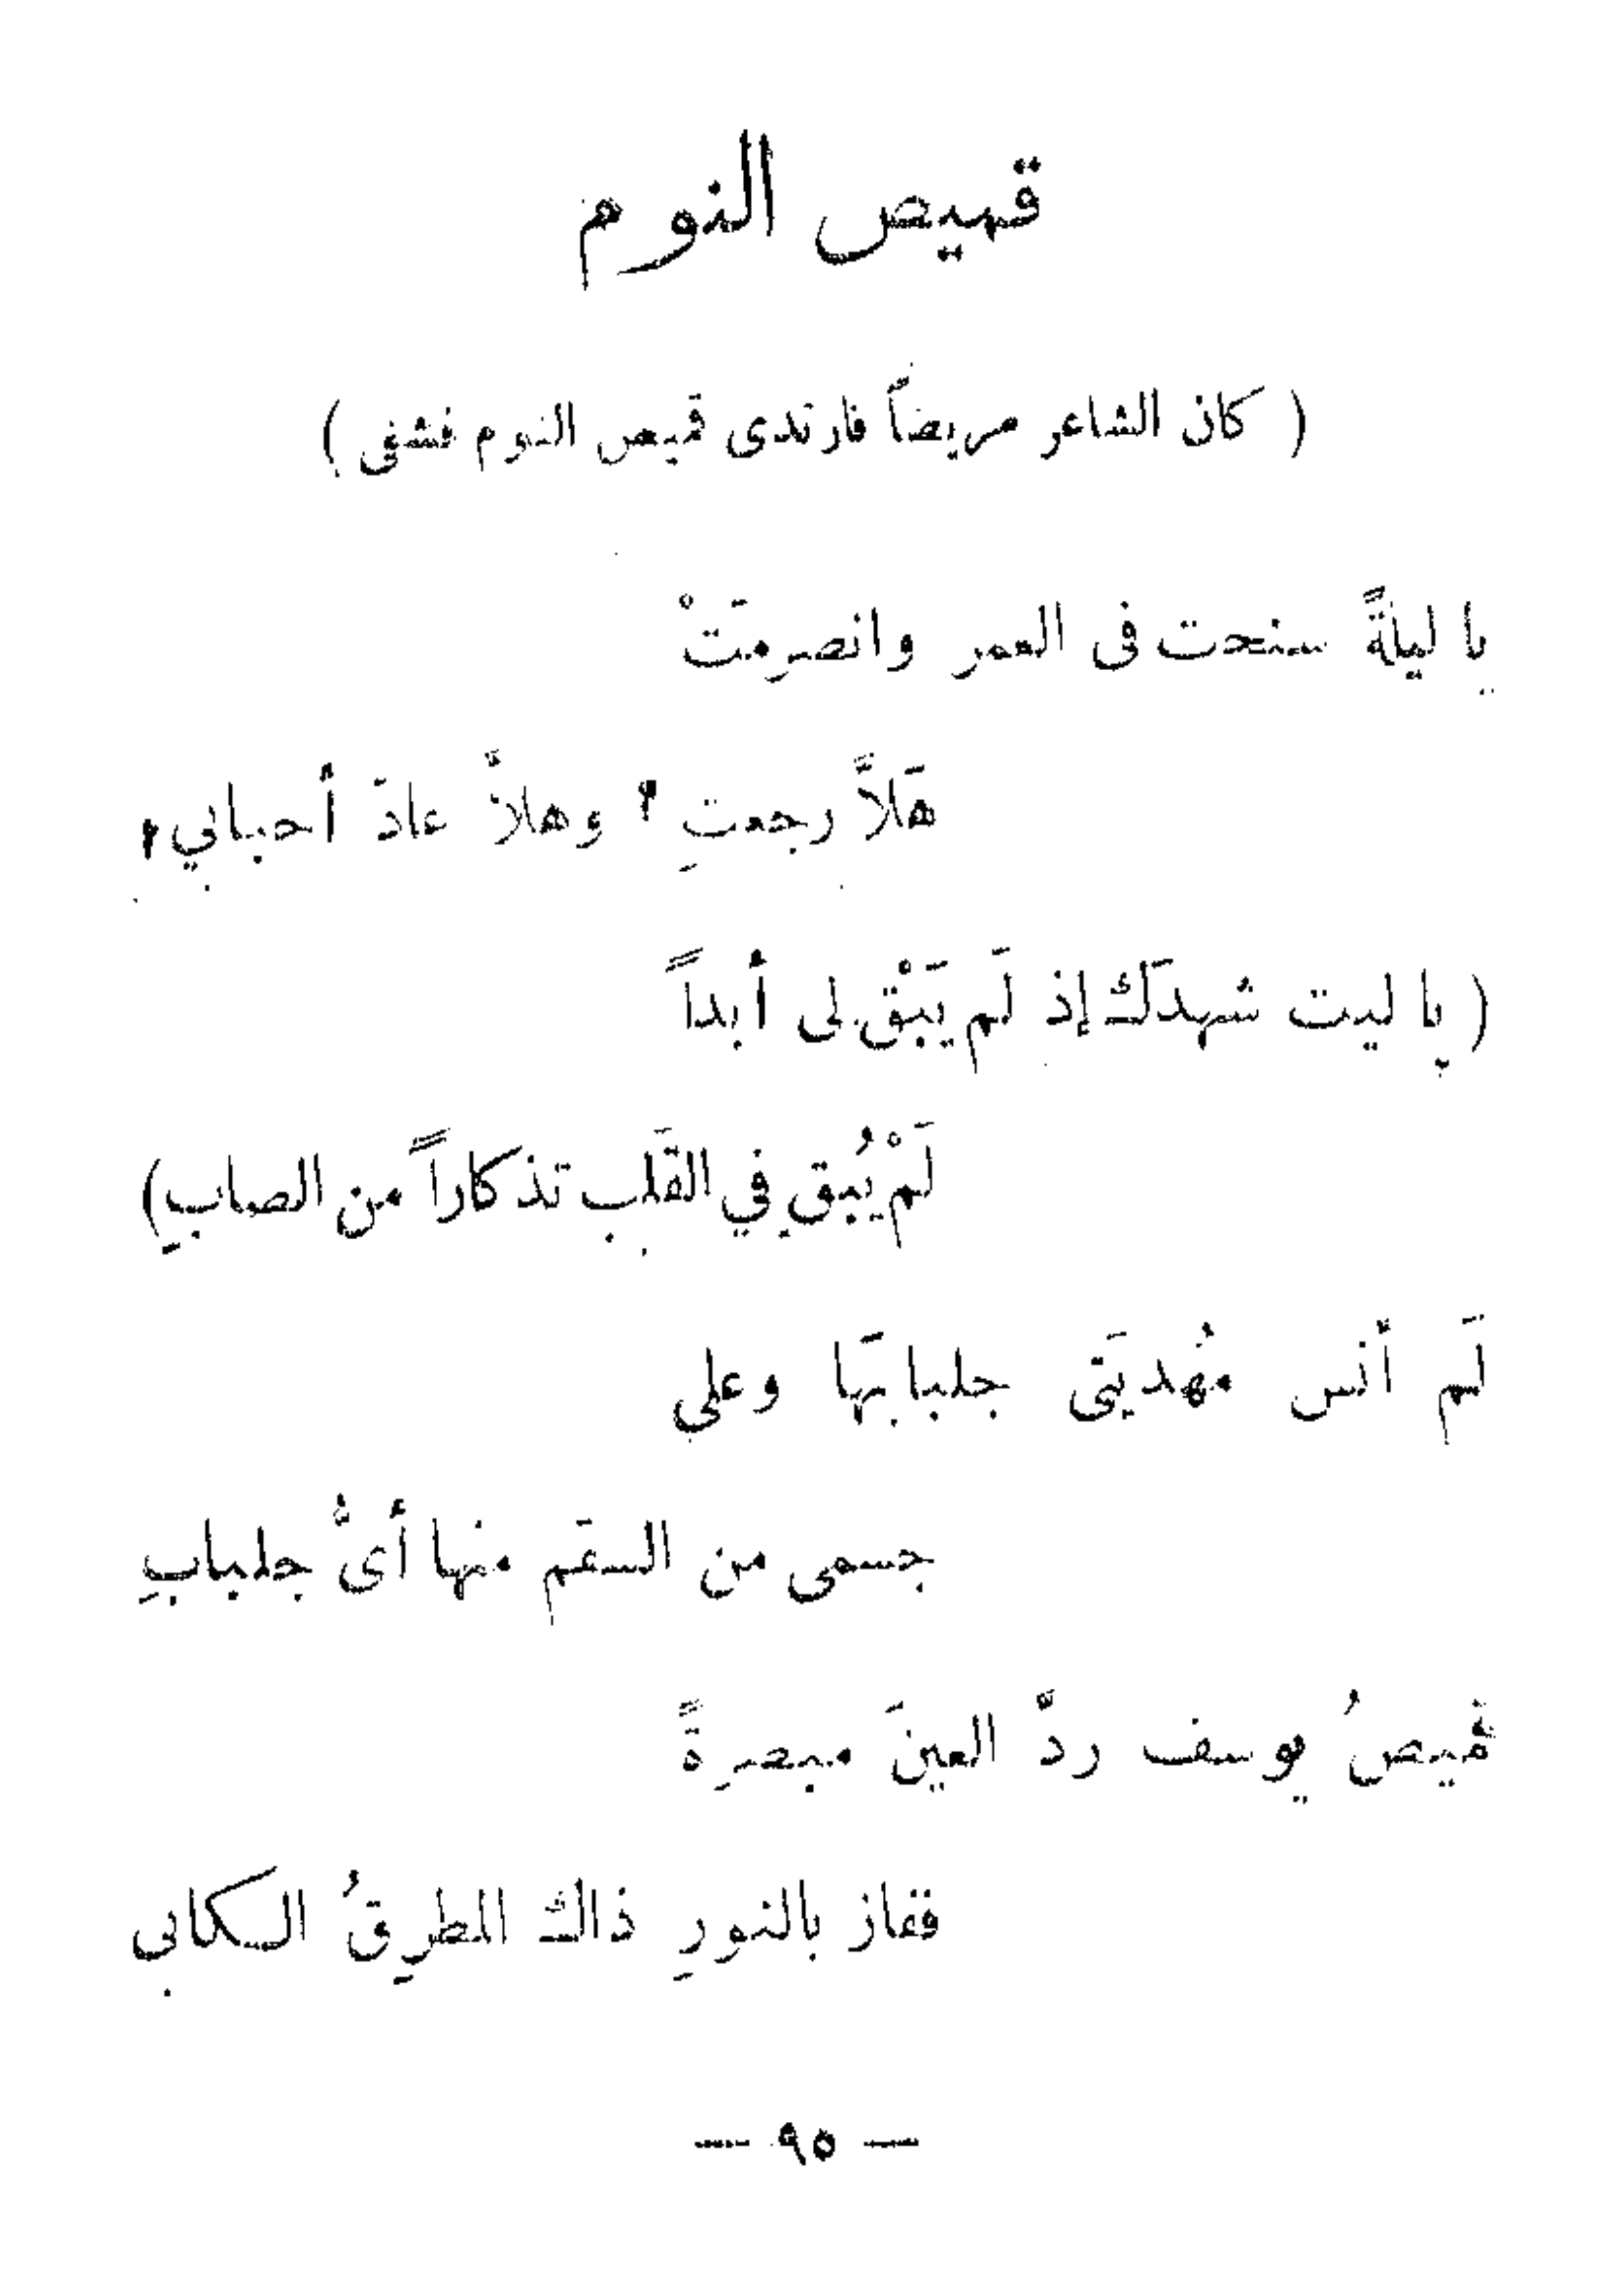 قميص النوم
( كان الشاعر مريضاً فارتدى قميص النوم فشفى )
يا ليلةً سنحت فى العمر وانصرمَتْ
هَلاَّ رجعتِ ؟ وهلاَّ عادَ أحبابي ؟
( يا ليت شهدَك إذ لَم يَبْق لى أبداً
لَمْ يُبقِ في القَلب تذكاراً من الصابِ )
لَم أنس مُهديَتى جلبابَها وعلى
جسمى من السقَم منها أىُّ جلبابِ
قَميصُ يوسف ردَّ العينَ مبصرةً
ففاز بالنورِ ذاك المطرِقُ الكابي
— ٩٥ —